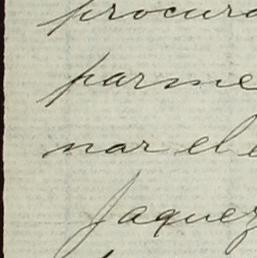 procura
parme
nar el e
Jaquez